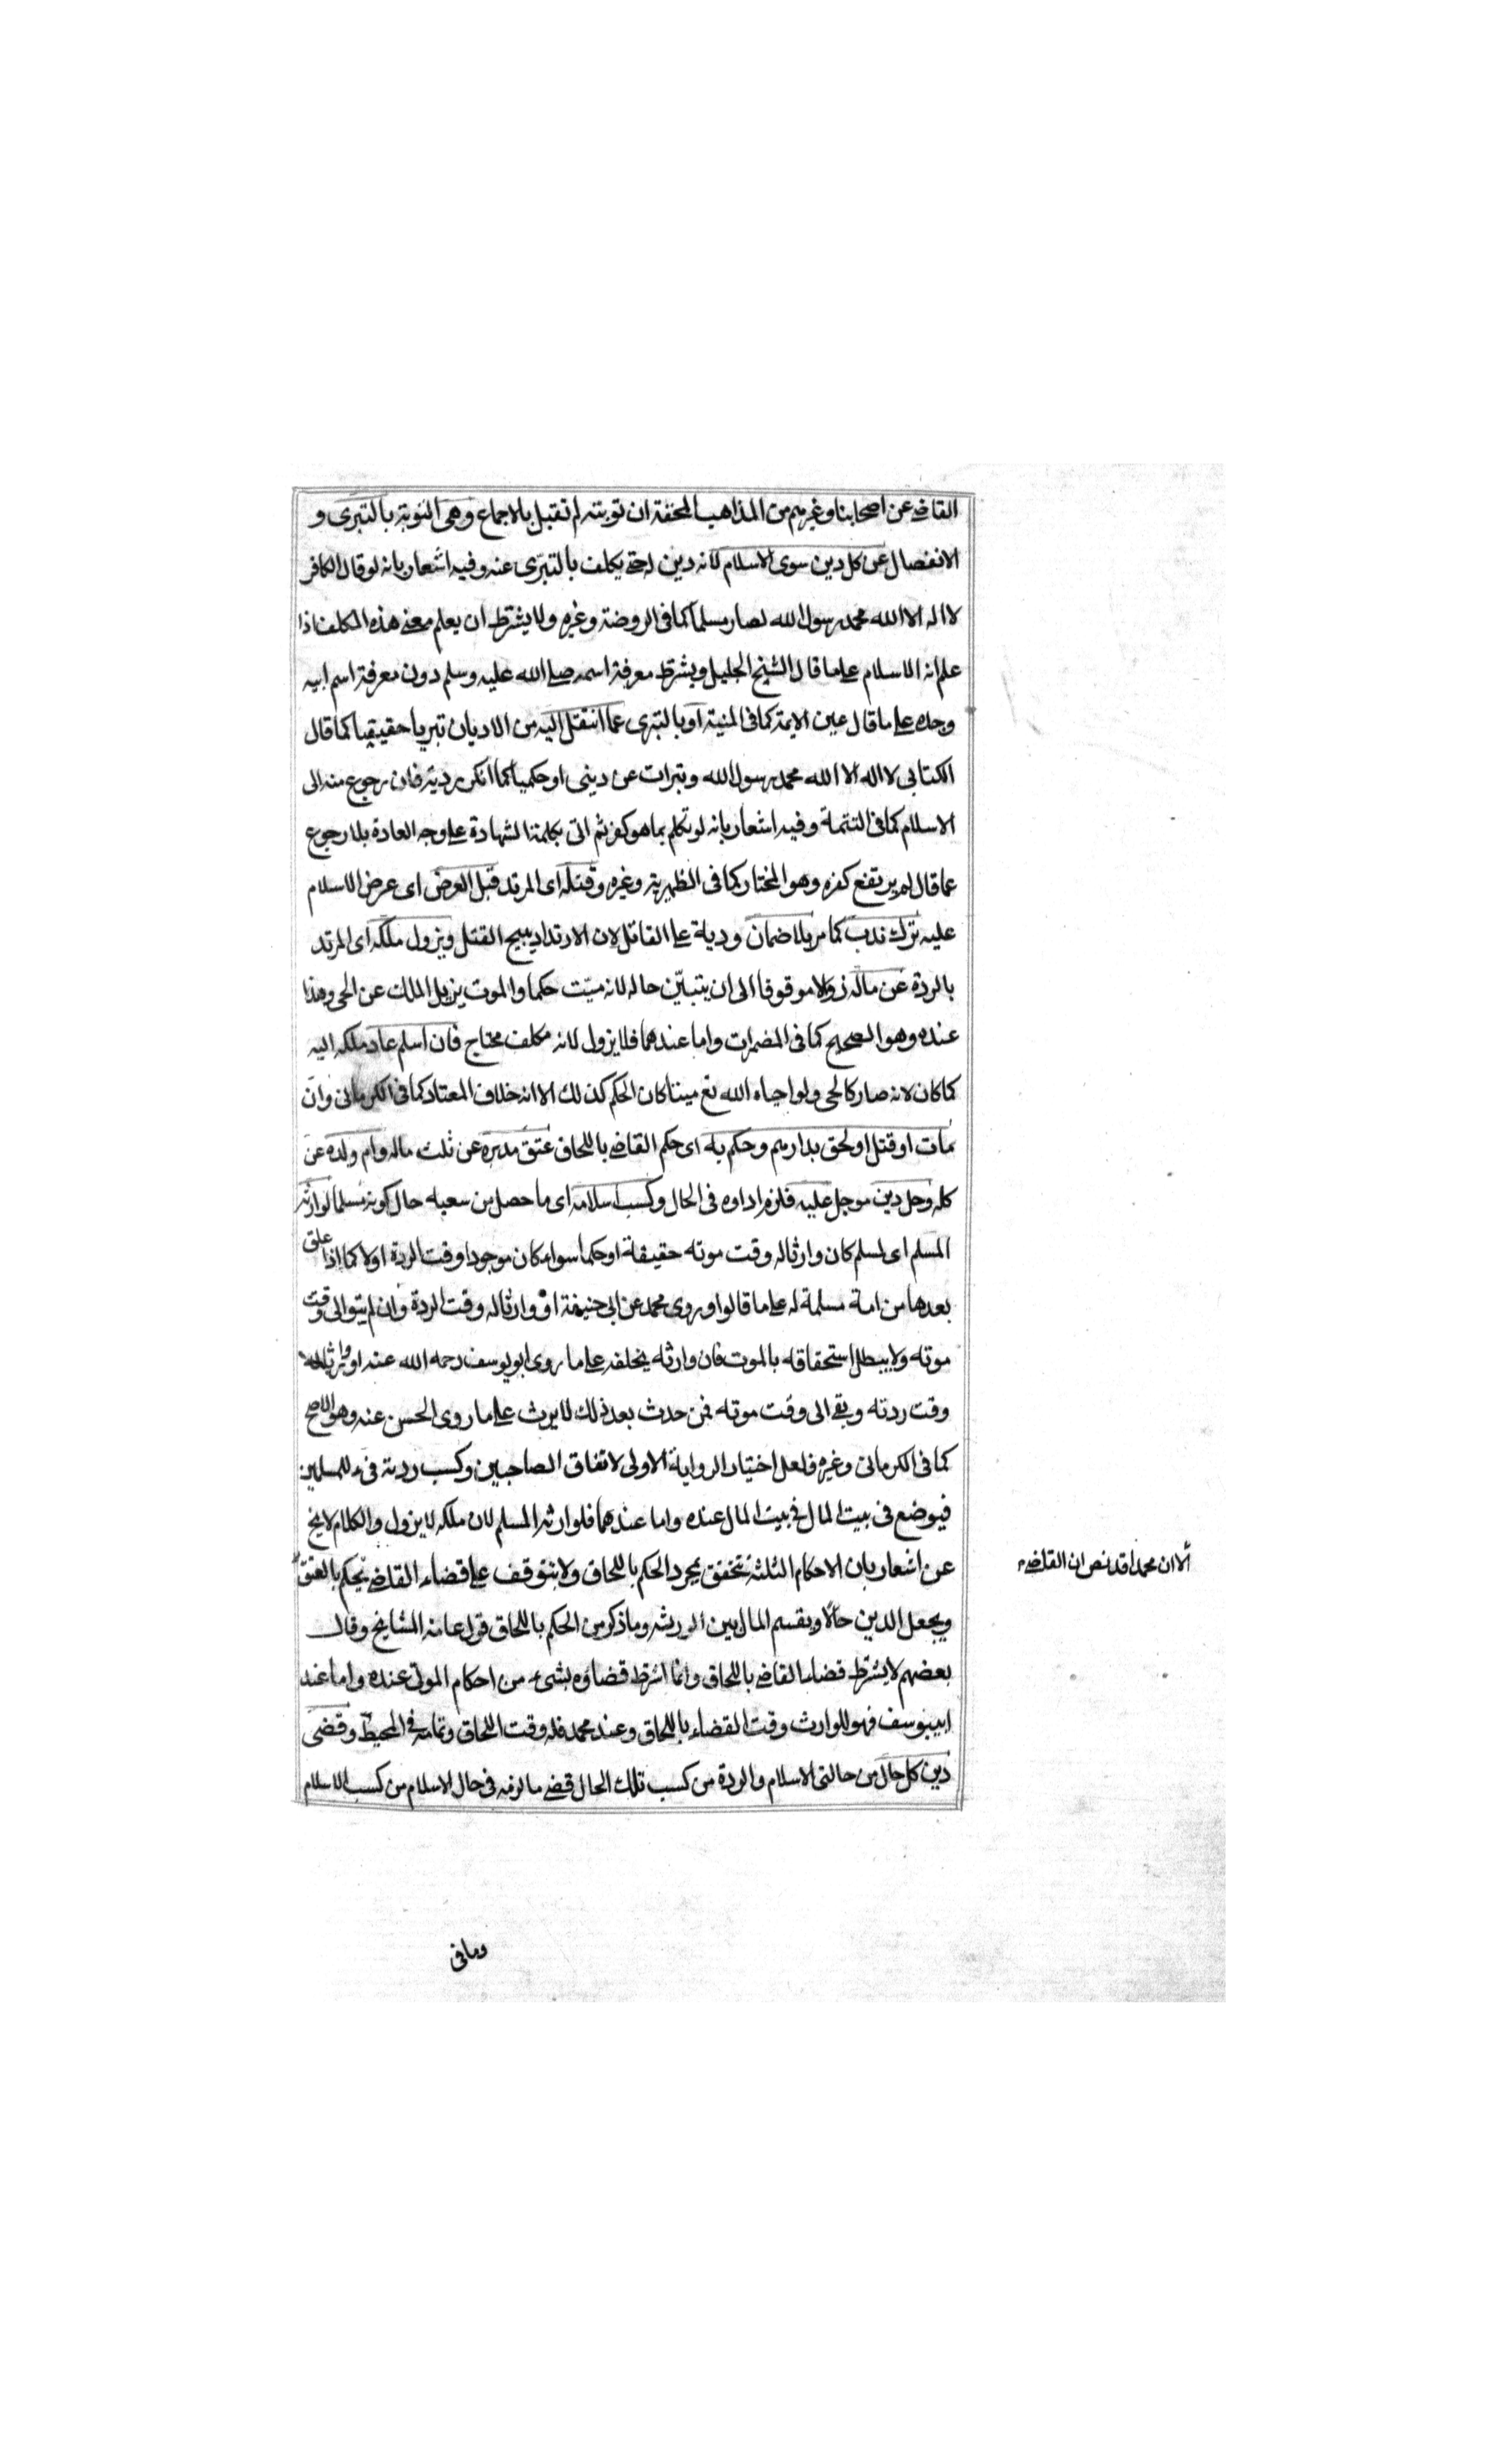 القاضى عن اصحابنا وغيرهم من المذاهب المحققة ان توبته لم تقبل بالاجماع وهى التوبة بالتبرى و
الانفصال عن كل دين سوى الاسلام لانه دين له حتى يكلف بالتبرّى عنه وفيه اشعار بانه لو قال الكافر
لا اله الا الله محمد رسول الله لصار مسلما كما فى الروضة وغيره ولا يشترط ان يعلم معنى هذه المكلف اذا
علم انه الاسلام على ما قال الشيخ الجليل ويشترط معرفة اسمه صلى الله عليه وسلم دون معرفة اسم ابيه
وجده على ما قال عين الايمة كما فى المنية او بالتبرى عما انتقل اليه من الاديان تبريا حقيقيا كما قال
الكتابى لا اله الا الله محمد رسول الله وتبرات عن دينى او حكميا كما انكر ردته فان رجوع منه الى
الاسلام كما فى التتمة وفيه اشعار بانه لو تكلم بما هو كفر ثم اتى بكلمتا الشهادة على وجه العادة بلا رجوع
عما قال لم يرتفع كفره وهو المختار كما فى الظهيرية وغيره وقتله اى المرتد قبل العرض اى عرض الاسلام
عليه ترك ندب كما مر بلا ضمان ودية على القاتل لان الارتداد يبيح القتل ويزول ملكه اى المرتد
بالردة عن ماله زوالا موقوفا الى ان يتبيّن حاله لانه ميّت حكما والموت يزيل الملك عن الحى وهذا
عنده وهو الصحيح كما فى المضمرات واما عندهما فلا يزول لانه مكلف محتاج فان اسلم عاد ملكه اليه
كما كان لانه صار كالحى ولو احياه الله تع ميتا كان الحكم كذلك الا انه خلاف المعتاد كما فى الكرمانى وان
مات او قتل او لحق بدارهم وحكم به اى حكم القاضى باللحاق عتق مدبره عن ثلث ماله وام ولده عن
كله وحل دين موجل عليه فلزم اداوه فى الحال وكسب اسلامه اى ما حصل من سعيه حال كونه مسلما لوارثه
المسلم اى لمسلم كان وارثا له وقت موته حقيقة او حكما سواء كان موجودا وقت الردة اولا كما اذا علق
بعدها من امة مسلمة له على ما قالوا وروى محمد عن ابى حنيفة او وارثا له وقت الردة وان لم يبق الى وقت
موته ولا يبطل استحقاقه بالموت فان وارثه يخلفه على ما روى ابو يوسف رحمه الله عنه او وارثا له
وقت ردته وبقى الى وقت موته فمن حدث بعد ذلك لا يرث على ما روى الحسن عنه وهو الاصح
كما فى الكرمانى وغيره فلعل اختيار الرواية الاولى لاتفاق الصاحبين وكسب ردته فىء للمسلمين
فيوضع فى بيت المال فى بيت المال عنده واما عندهما فلوارثه المسلم لان ملكه لا يزول والكلام لا يخ
عن اشعار بان الاحكام الثلثة تتحقق بمجرد الحكم باللحاق ولا يتوقف على قضاء القاضى يحكم بالعتق
الا ان محمدا قد نص ان القاضى
ويجعل الدين حالا ويقسم المال بين الورثه وما ذكر من الحكم باللحاق قول عامه المشايخ وقال
بعضهم لا يشترط قضاء القاضى باللحاق وانما اشترط قضاؤه بشىء من احكام الموتى عنده واما عند
ابى يوسف فهو للوارث وقت القضاء باللحاق وعند محمد فله وقت اللحاق وتمامه فى المحيط وقضى
دين كل حال من حالتى الاسلام والردة من كسب تلك الحال قضى ما لزمه فى حال الاسلام من كسب الاسلام
وما فى